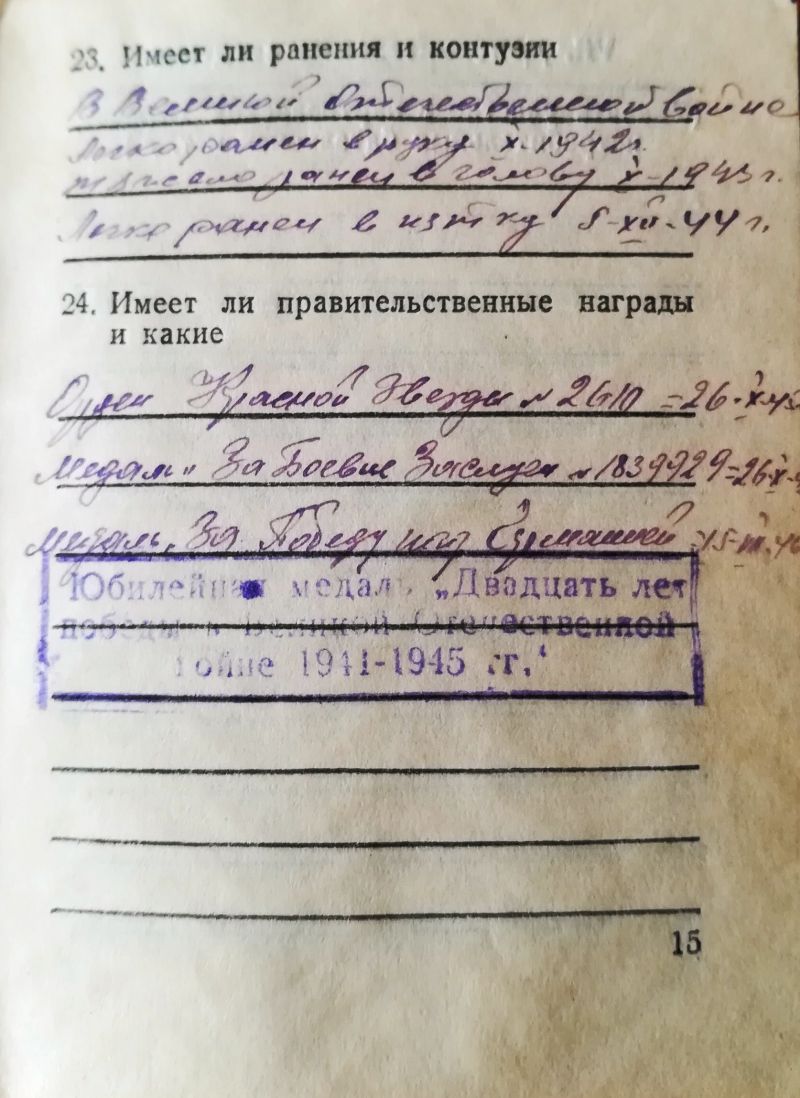 23. Имеет ли ранения и контузии
В Великой Отечественной войне
Легко ранен в руку X-1942г.
тяжело ранен в голову X-1943г.
Легко ранен в пятку 5-XII-44г.
24. Имеет ли правительственные награды
и какие
Орден Красной Звезды N = 26-X-
Медаль "За Боевые Заслуги" N 1839929 = 26-X-
Медаль "За Победу над Германией = 15-
Юбилейная медаль „Двадцать лет
победы в Великой Отечественной
войне 1941-1945 гг.“
15